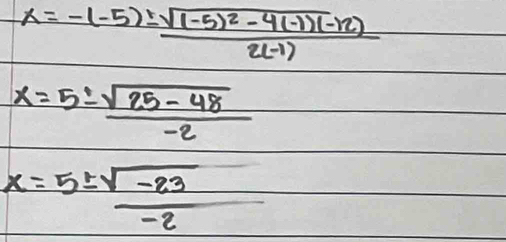 x = -(-5) ± √(-5)² - 4(-1)(-12)
2(-1)
x = 5 ± √25 - 48
-2
x = 5 ± √-23
-2